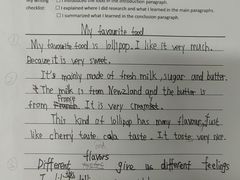 My writing
I introduced the food in the introduction paragraph.
checklist
□ I explained where I did research and what I learned in the main paragraphs.
□ I summarized what I learned in the conclusion paragraph.
My favourite food
My favourite food is lollipop. I like it very much.
Because it is very sweet.
It's mainly made of fresh milk, sugar and butter.
The milk is from Newzland and the butter is
from France. It is very creamy
This kind of lollipop has many flavour, just
like cherry taste, cola taste. It taste very nice.
flavors
Different give us different feelings